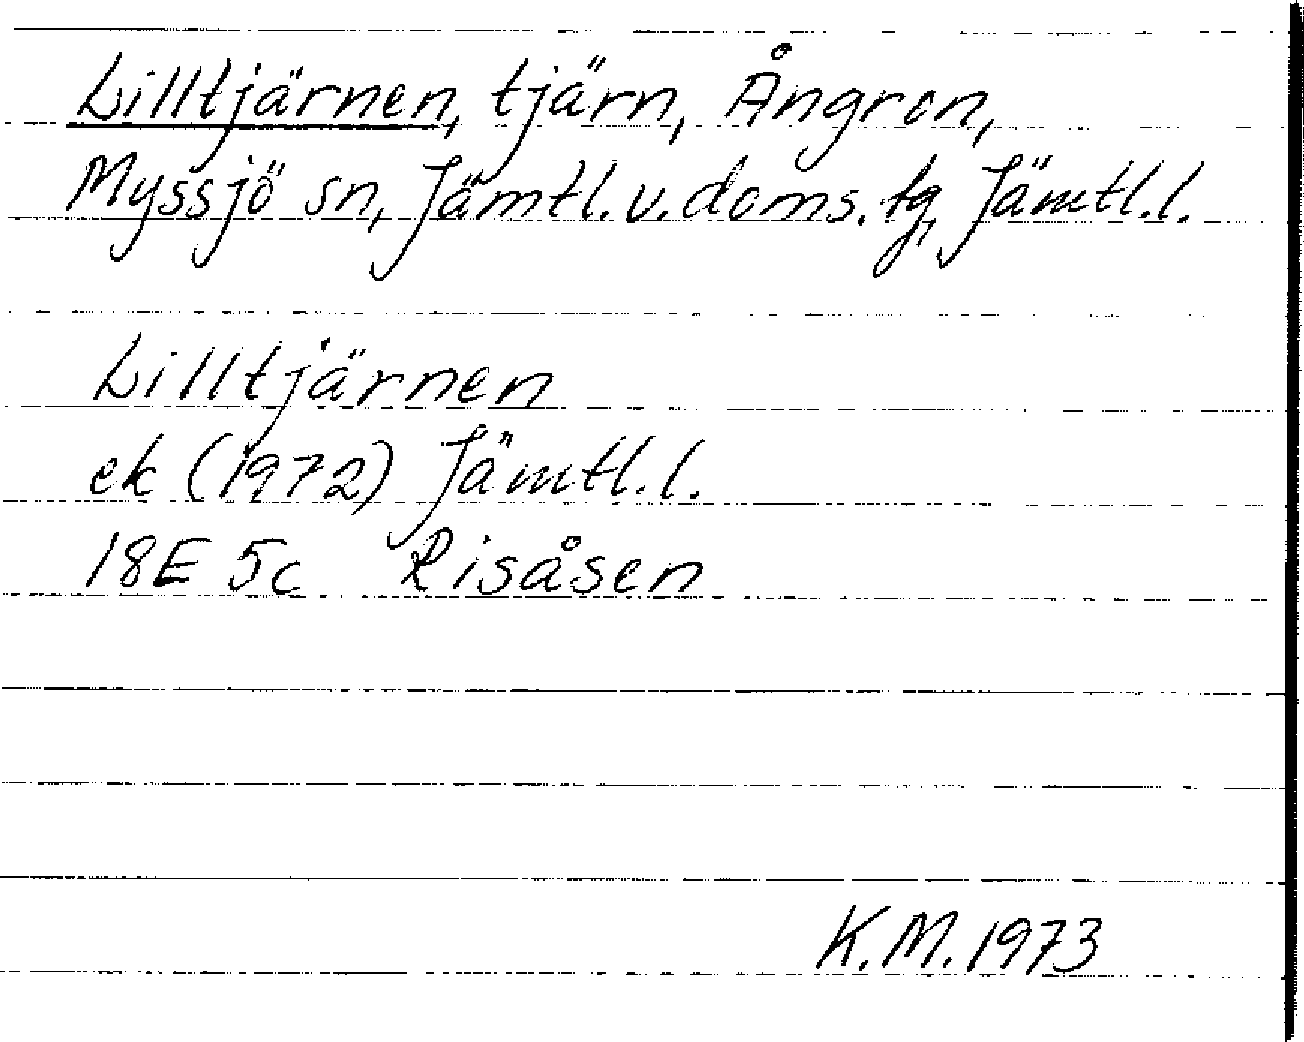 Lilltjärnen, tjärn, Ångron,
Myssjö sn, Jämtl. v. doms. tg, Jämtl. l.
Lilltjärnen
ek (1972) Jämtl. l.
18E 5c Risåsen
K. M. 1973